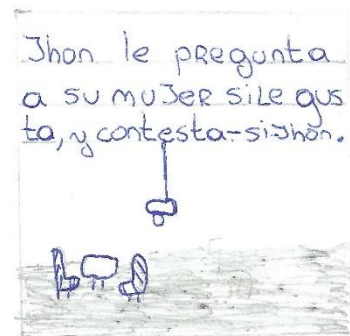 Jhon le pregunta
a su muJer siLe gus
ta, y contesta-siJhon.